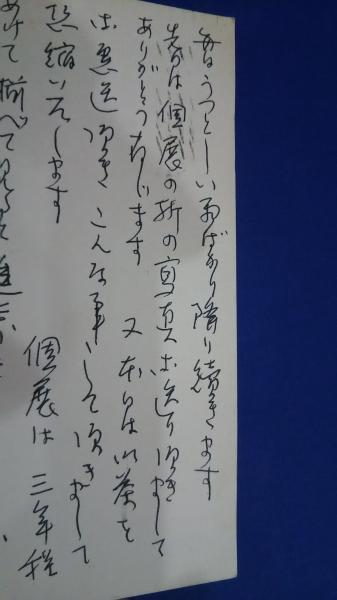 毎日うつとしい雨ばかり降り續きます
先日は個展の折の寫真お送り頂きまして
ありがとう存じます 又本日は御茶を
御恵送頂き こんな事して頂きまして
恐縮いたします 個展は三年程
あけて べて見ると進